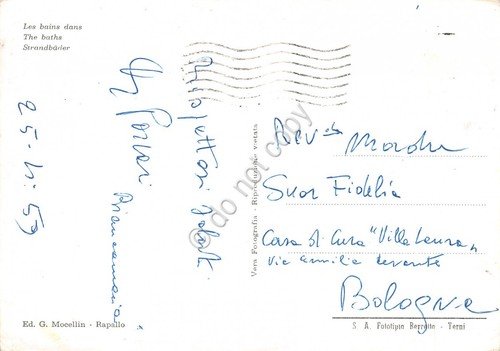 Les bains dans
The baths
Strandbäder
25-4-59
Affettuosi saluti
Biancamaria
Ed. G. Mocellin - Rapallo
Vera Fotografia - Riproduzione vietata
Rev.da Madre
Suor Fidelia
Casa di Cura "Villa Laura"
Via Emilia Levante
Bologna
S. A. Fototipia Berretta - Terni
do not copy